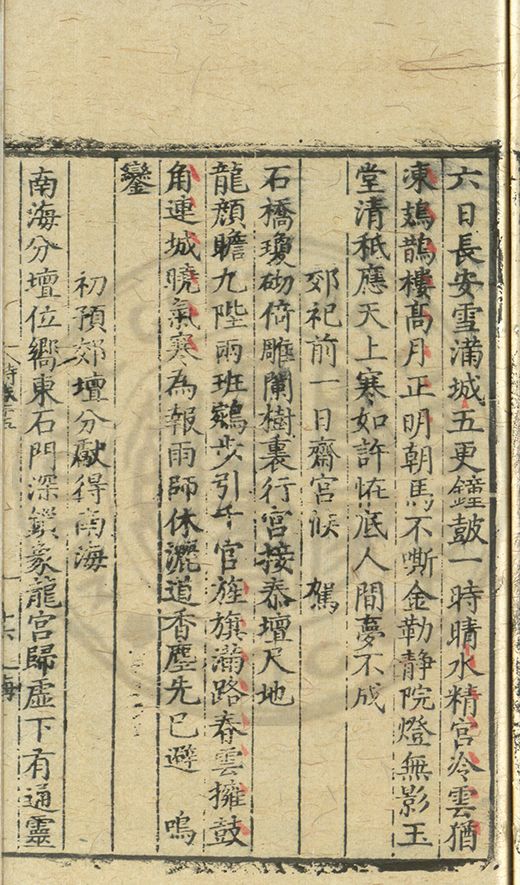 六日長安雪滿城五更鐘鼓一時晴水精宮冷雲猶
凍鳷鵲樓髙月正明朝馬不嘶金勒静院燈無影玉
堂清秪應天上寒如許恠底人間夢不成
郊祀前一日齋宮候 駕
石橋瓊砌倚雕闌樹裏行宮接泰壇尺地
龍顔瞻九陛兩班鵷步引千官旌旗滿路春雲擁鼓
角連城曉氣寒為報雨師休灑道香塵先已避 鳴
鑾
初預郊壇分獻得南海
南海分壇位嚮東石門深鎖象龍宮歸虛下有通靈